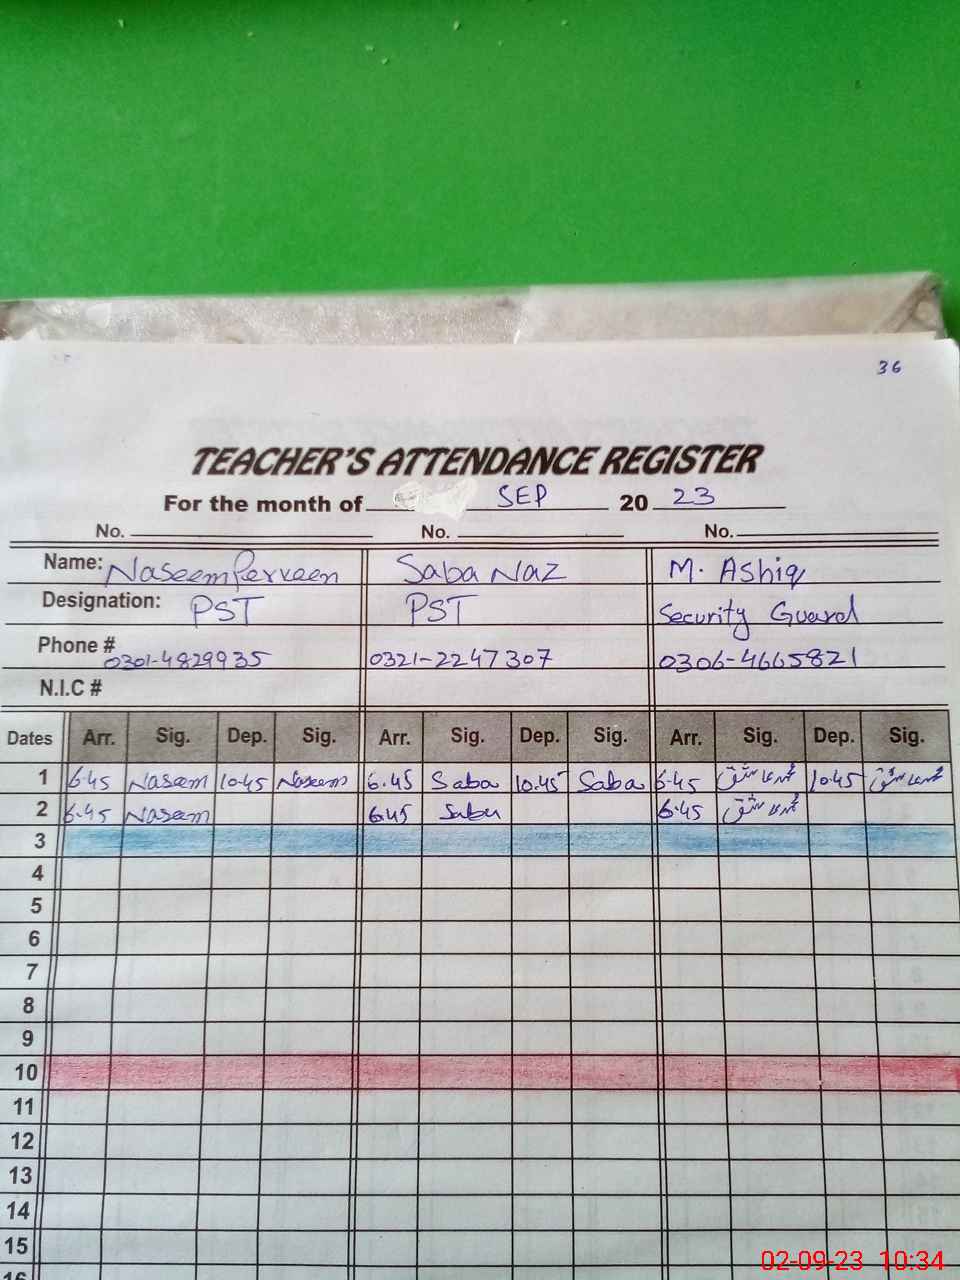 36
TEACHER'S ATTENDANCE REGISTER
For the month of SEP 20 23
No. No. No.
Name: Naseem Perveen Saba Naz M. Ashiq
Designation: PST PST Security Guard
Phone # 0301-4829935 0321-2247307 0306-4665821
N.I.C #
Dates Arr. Sig. Dep. Sig. Arr. Sig. Dep. Sig. Arr. Sig. Dep. Sig.
1 6.45 Naseem 10.45 Naseem 6.45 Saba 10.45 Saba 6.45 محمد عاشق 10.45 محمد عاشق
2 6.45 Naseem 6.45 Saba 6.45 محمد عاشق
3
4
5
6
7
8
9
10
11
12
13
14
15
16
02-09-23 10:34